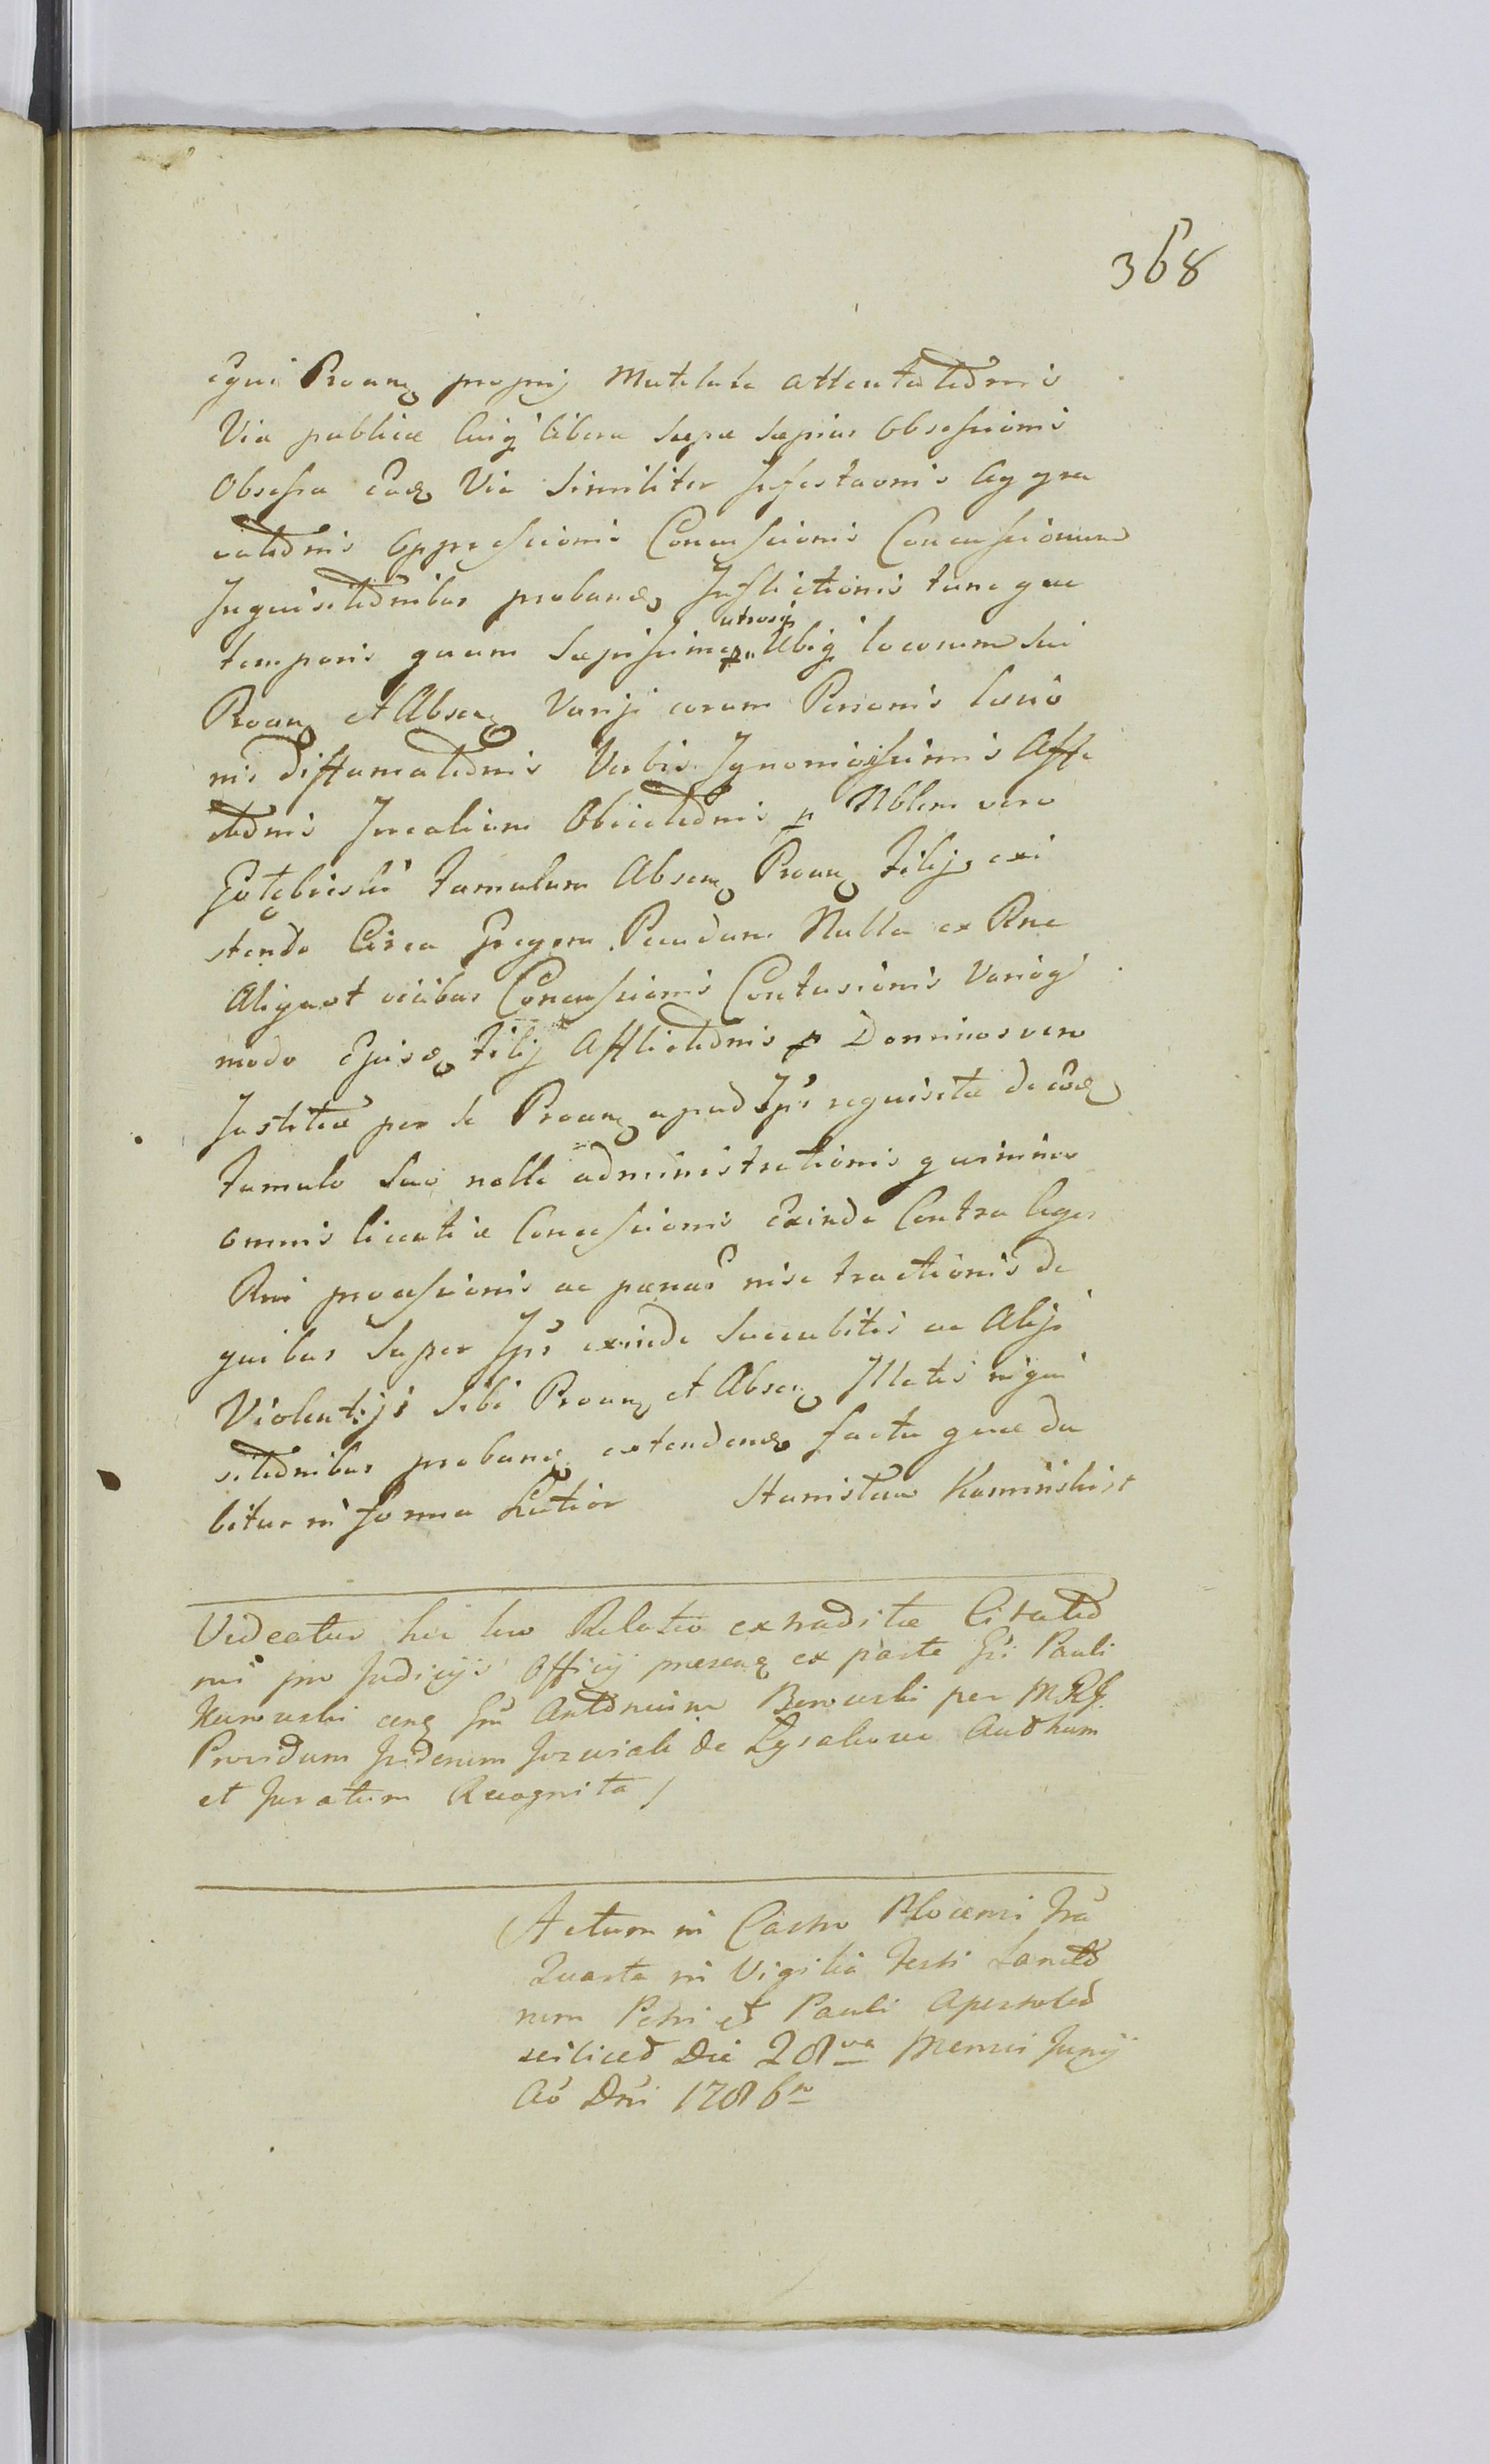 368
equi Proan proprij Mutilata attentationis
Via publica cuiq libera saepe saepius Obsessionis
Obsessa Ead Via Similiter Infestaonis Aggra
vationis Oppressionis Concussionis Concussionum
Inquisitionibus proband Inflictionis tunc quae
utrosq
temporis quam Saepissime p Ubiq locorum sui
Proan et Absen Varijs coram Personis
nis diffamationis Verbis Ignomiosissimis Affe
ctionis Obiectionis p Nblem vero
Gołębieski famulum Absen Proan filij exi
stende Circa Gregem Pecudum Nulla ex Rne
Aliquot vicibus Concussionis Contusionis Varioq
modo Ejusd filij Afflictionis p Dominos vero
Justitiae per se Proan apud Ips requisita de eod
famulo Suo nolle administrationis quinimo
omnis licentiae Concessionis Exinde Contra leges
Rni processionis ac paenas nise tractionis de
quibus Super Ips exinde Succubitis ac Alijs
Violentijs Sibi Proan et Absen Illatis inqui
sitionibus proband extendend facta quae da
bitur in forma Latior Stanisław Kamiński
Videatur hic loco Relatio extraditae Citatio
nis pro Judicijs Officij praesen ex parte Gsi Pauli
per MRJ
Providum de Authum
et Juratum Recognita
Actum in Castro Plocensi fria
Quarta in Vigilia festi Sancto
rum Petri et Pauli Apostolo
scilicet Die 28va Mensis Junij
Ao Dni 1786to